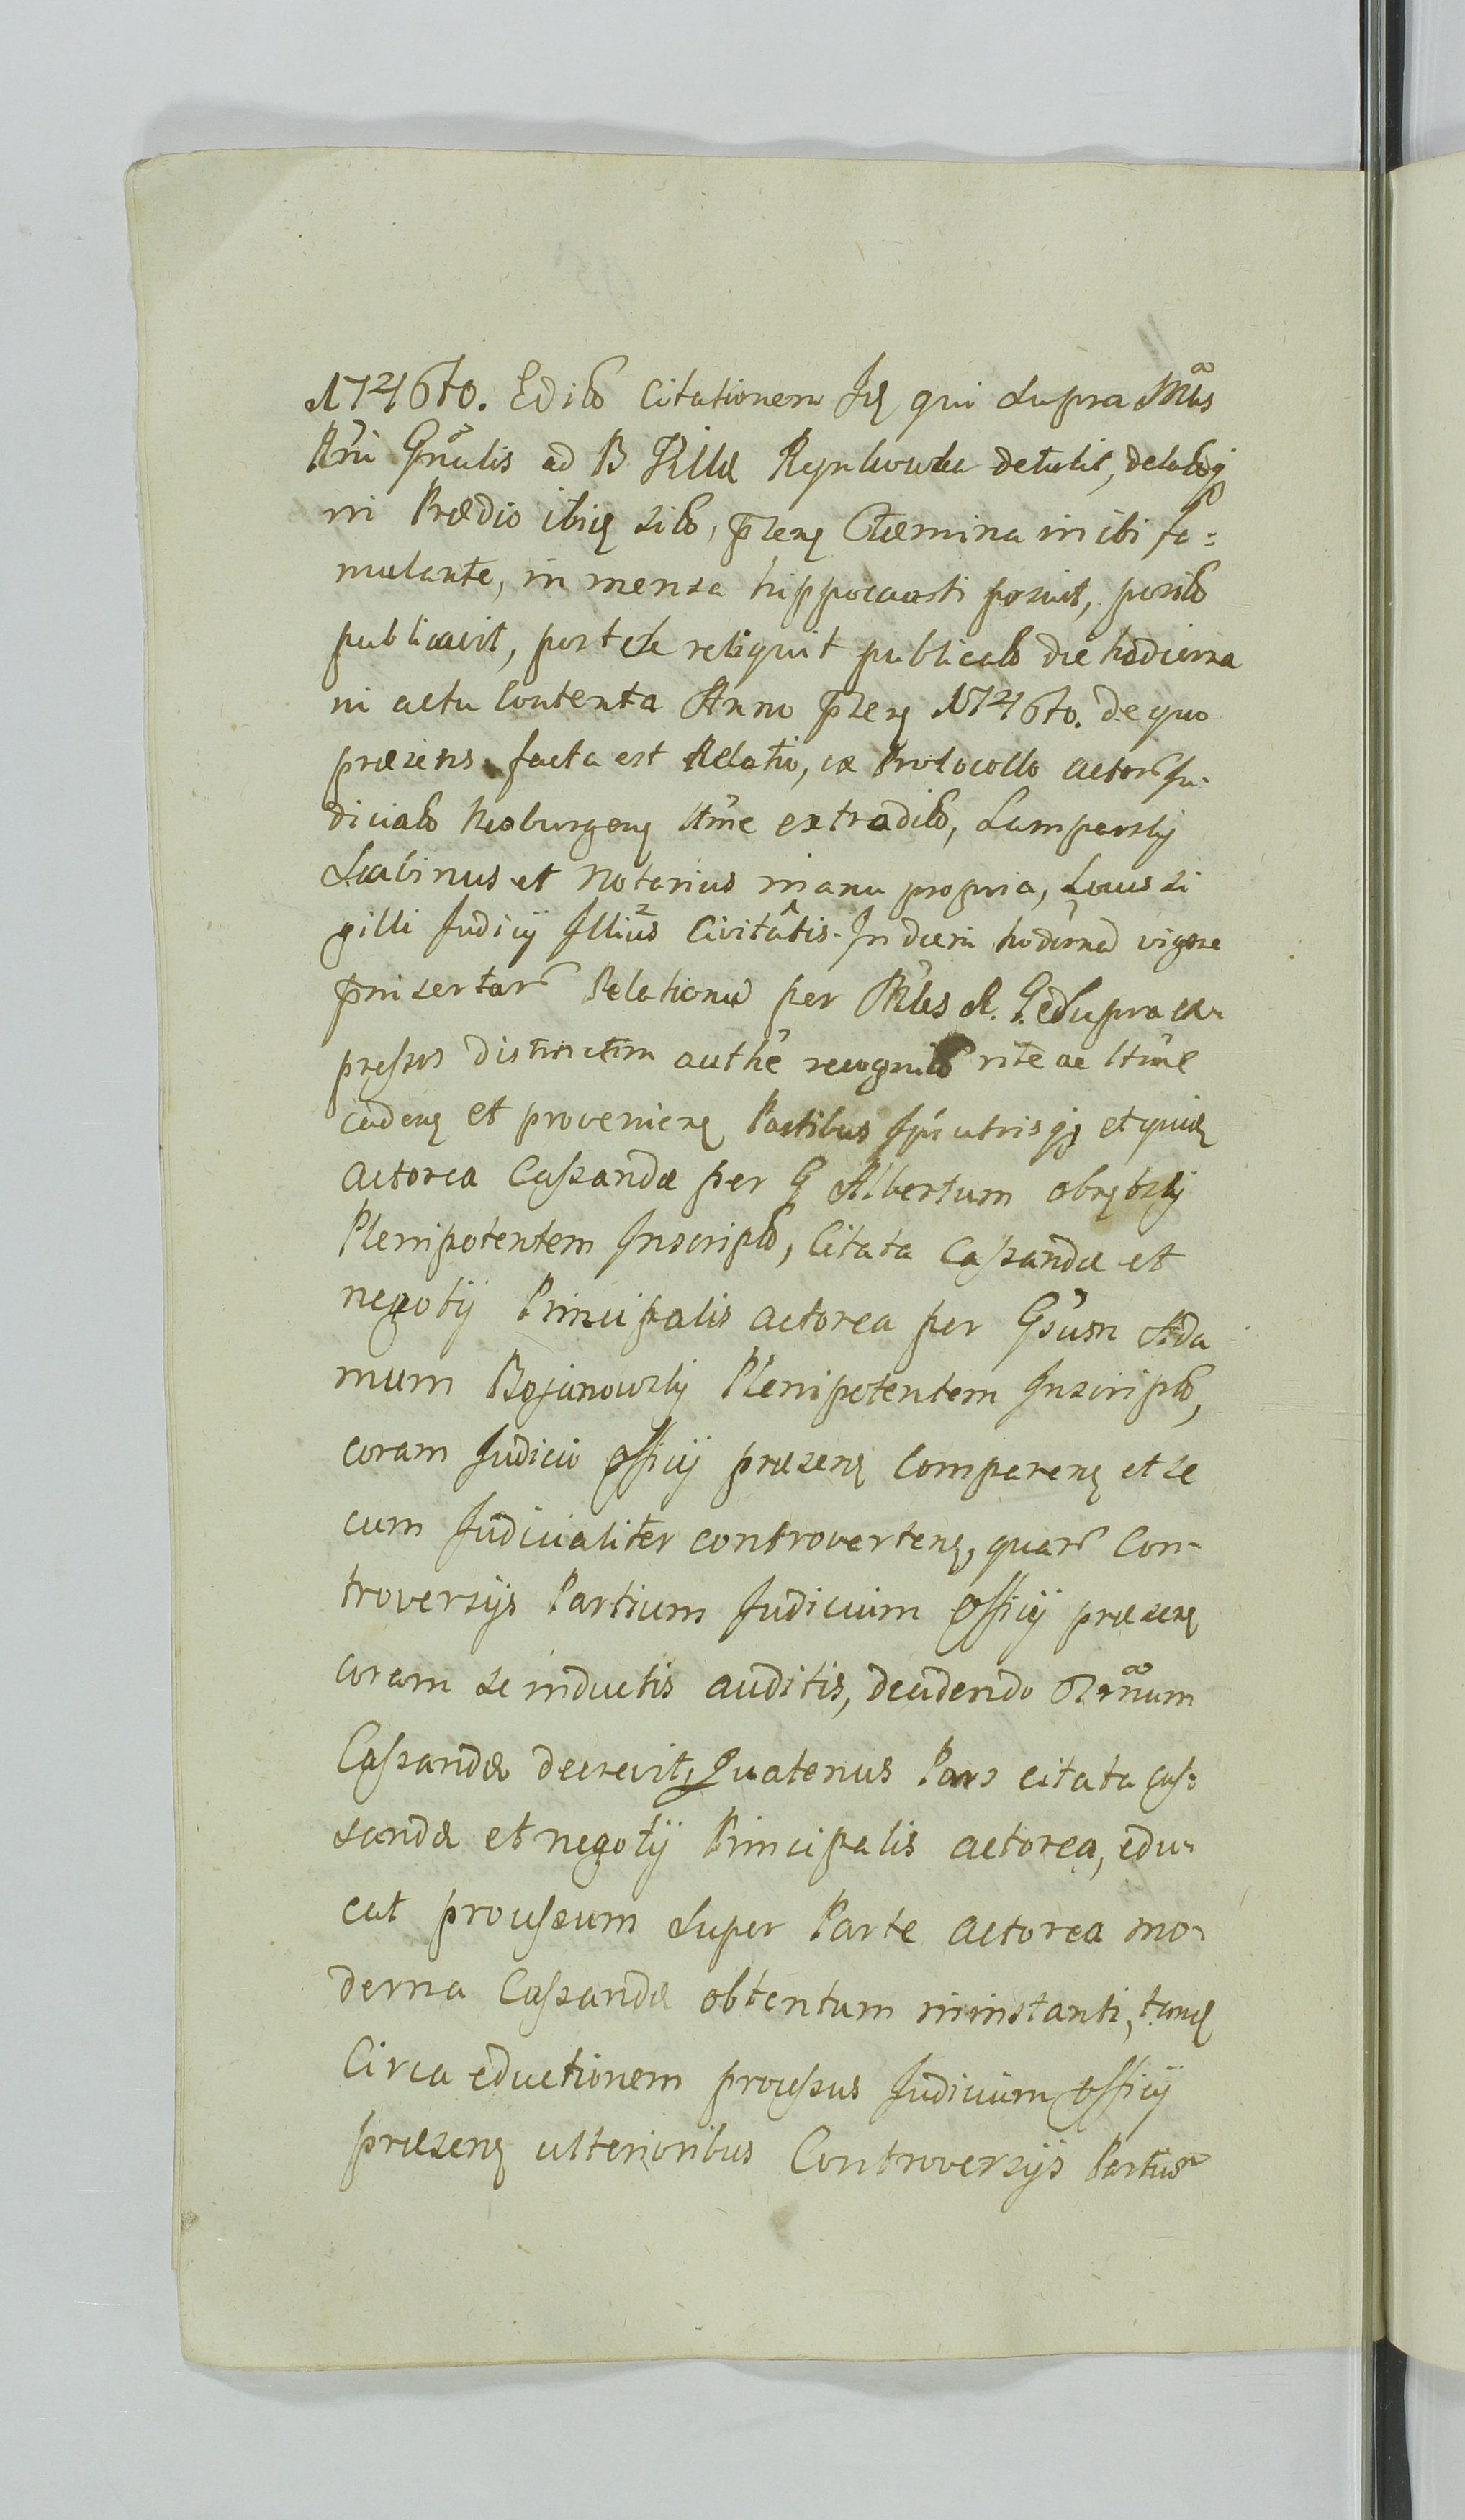 1746to. Edito Citationem Id qui supra Mtus
Rni Gnalis ad B. Villa Rynkowka detulit, delatoq
in Prædio ibid sito, prsens Fæmina in ibi fa=
mulante, in mensa hippocausti posuit, posito
publicavit, post se reliquit publicato die hodierna
in actu contenta Anno prsens 1746to. de quo
præsens facta est Relatio, ex Protocollo actor Ju-
diciali Neoburgens ltme extradito,
Scabinus et Notarius manu propria, Locus Si
gilli Judicij Illius Civitatis. In diem hodierna vigore
prinsertar Relationu per Mtes R. G. Supra ex-
pressos distinctim authe recognito rite ac ltime
cadens et proveniens Partibus Ipis utrisqs et quid
Actorea Cassandæ per G Albertum obrębski
Plenipotentem Inscripto, Citata Cassandæ et
negotij Principalis actorea per Gsum Ada
mum Bojanowski Plenipotentem Inscripto,
coram Judicio officij præsens comparens et se
cum Judicialiter controvertens, quar Con-
troversijs Partium Judicium officij præsens
coram se inductis auditis, decidendo
Cassandæ decrevit, Quatenus Pars citata Cas=
sandæ et negotij Principalis actorea, edu-
cat processum super Parte actorea mo-
derna Cassandæ obtentum in instanti, tand
Circa eductionem processus Judicium officij
præsens ulterioribus Controversijs Partium